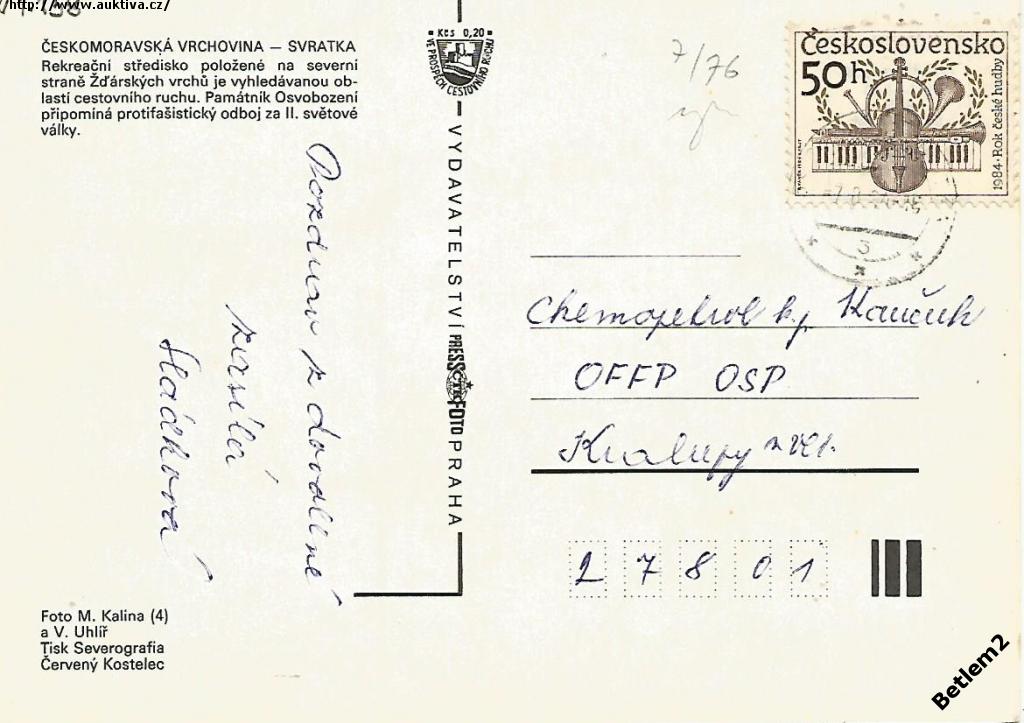 http://www.auktiva.cz/
ČESKOMORAVSKÁ VRCHOVINA – SVRATKA
Rekreační středisko položené na severní
straně Žďárských vrchů je vyhledávanou ob-
lastí cestovního ruchu. Památník Osvobození
připomíná protifašistický odboj za II. světové
války.
Kčs 0,20
VE PROSPĚCH CESTOVNÍHO RUCHU
7/76
Československo
50h
1984 · Rok české hudby
3
Pozdrav z dovolené
zasílá
Hládková
VYDAVATELSTVÍ PRESSFOTO PRAHA
ČTK
Chemopetrol kp Kaučuk
OFFP OSP
Kralupy n Vlt.
27801
Foto M. Kalina (4)
a V. Uhlíř
Tisk Severografia
Červený Kostelec
Betlem2